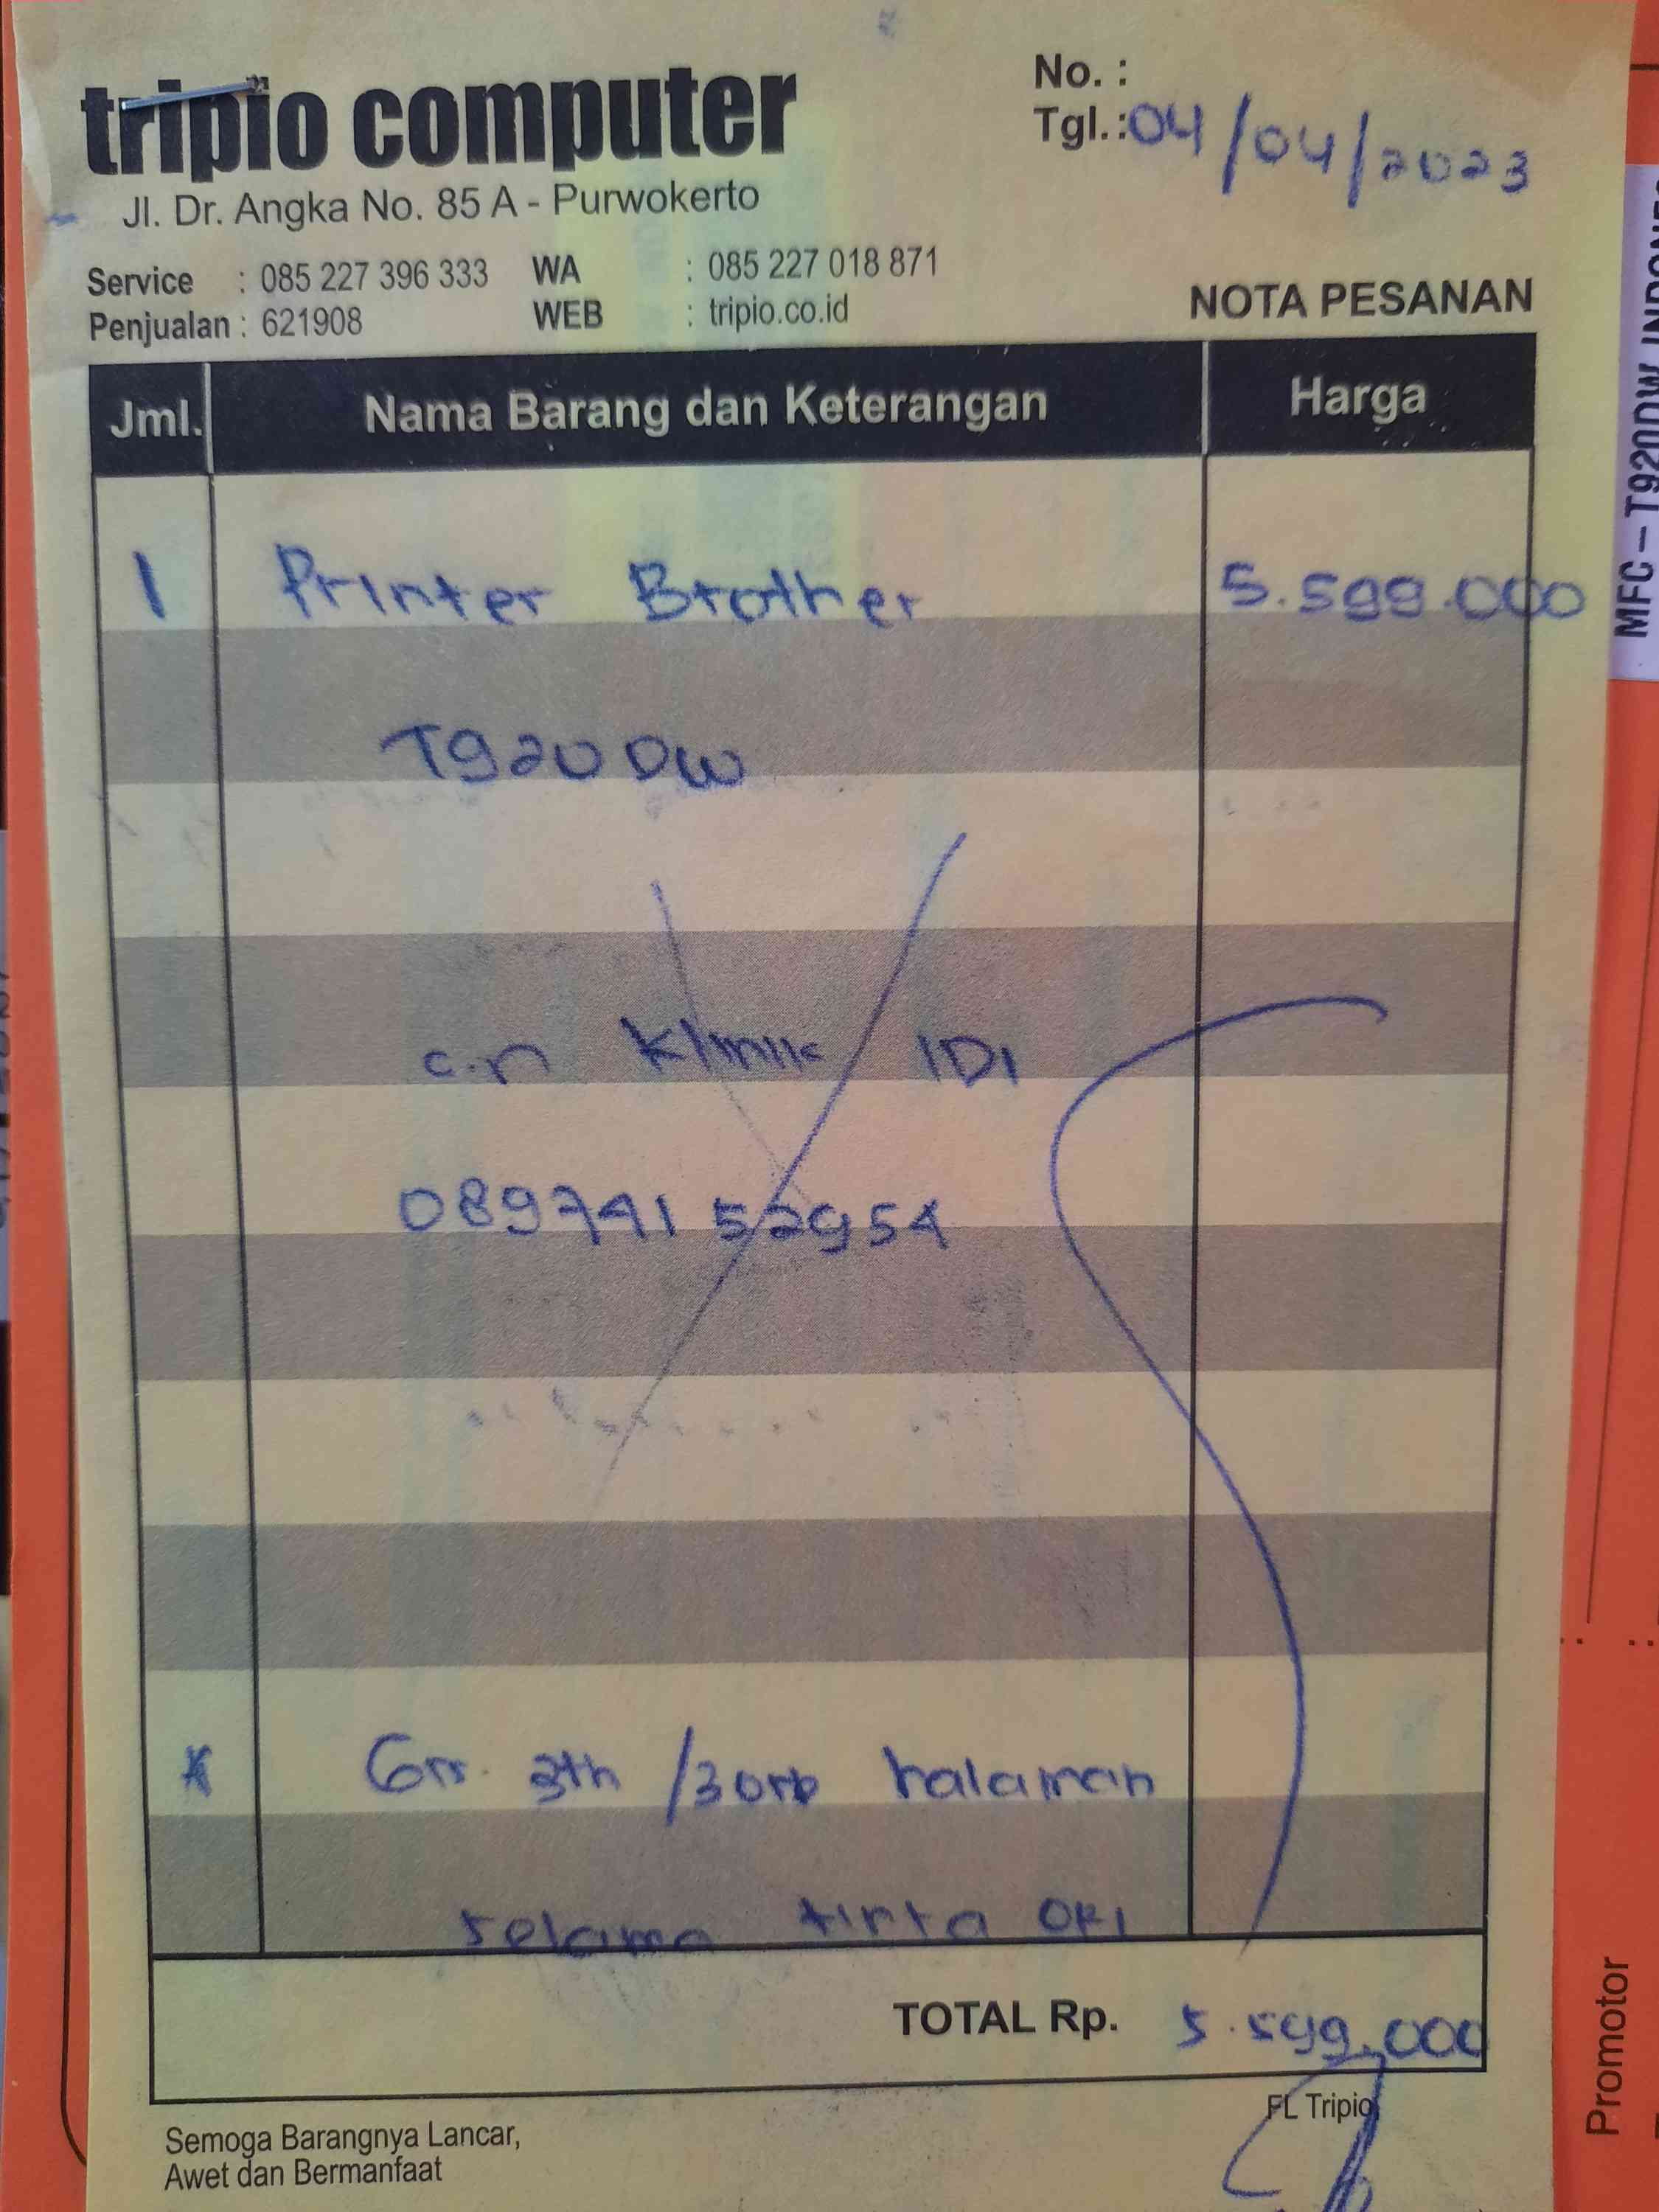 tripio computer
Jl. Dr. Angka No. 85 A - Purwokerto
Service : 085 227 396 333 WA : 085 227 018 871
Penjualan : 621908 WEB : tripio.co.id
No. :
Tgl. : 04/04/2023
NOTA PESANAN
Jml. Nama Barang dan Keterangan Harga
1 Printer Brother 5.599.000
T920 DW
a.n Klinik IDI
08979152954
* Grr. 3th /30rb halaman
selama tinta ORI
TOTAL Rp. 5.599.000
FL Tripio
Semoga Barangnya Lancar,
Awet dan Bermanfaat
MFC - T920DW
Promotor